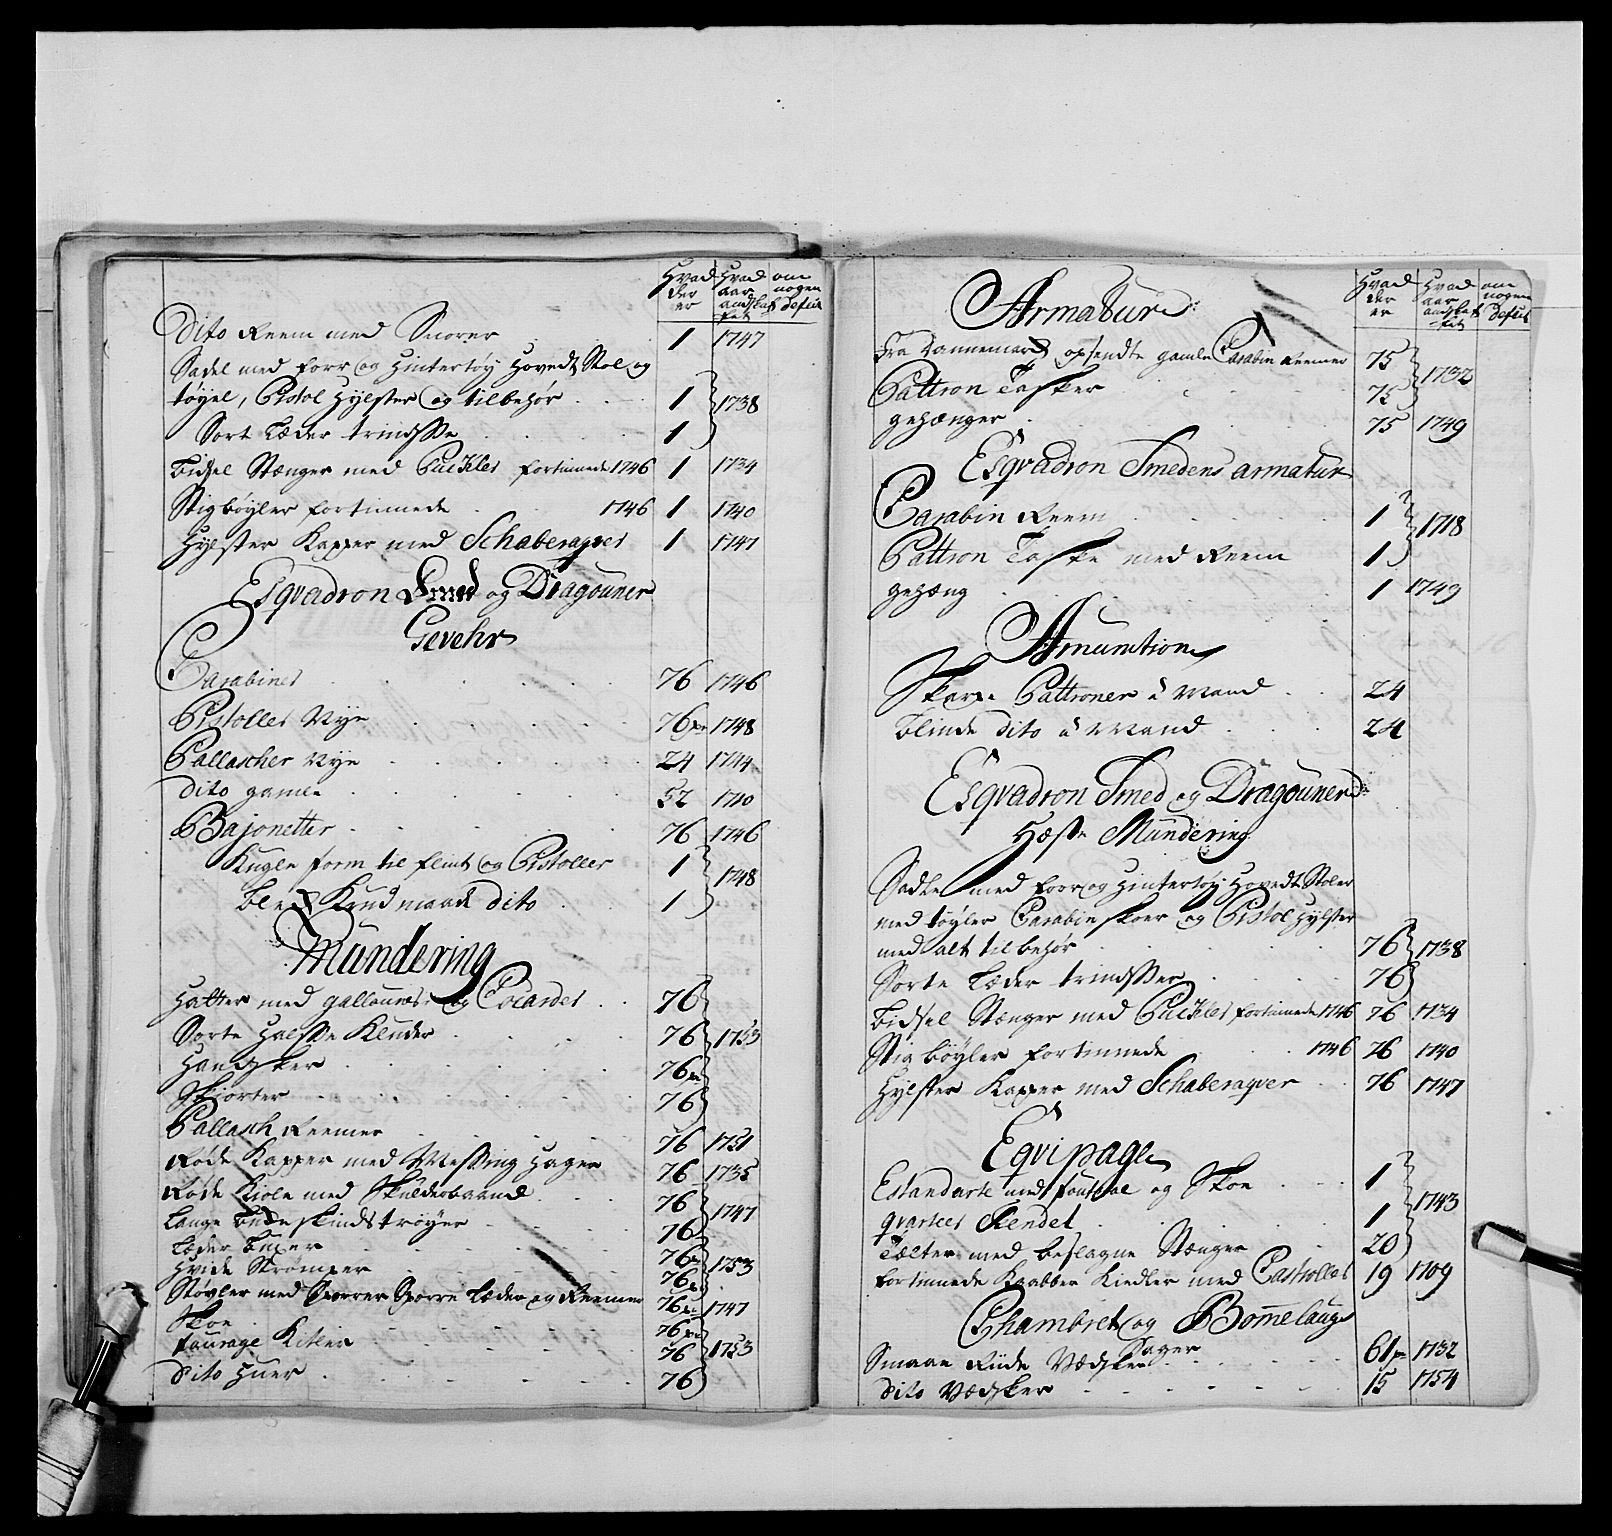 Hvad der er
Hvad aar anskaffet
om nogen defect
Dito Reem med Snorer 1 1747
Sadel med forr og Hintertøy Hovedt Stol og
tøyel, Pistol Hylster og tilbehør 1 1738
Sort Læder trindsse 1
Bidsel Stænger med Puckler fortinnede 1746 1 1734
Stigbøyler fortinnede 1746 1 1740
Hylster Kapper med Schaberaqver 1 1747
Esqvadron Smed og Dragouner
Gevehr
Carabiner 76 1746
Pistoller Nye 76 pr 1748
Pallascher Nye 24 1744
Dito gamle 52 1710
Bajonetter 76 1746
Kugle form til flint og Pistoller 1 1748
dito 1
Mundering
Hatter med gallouner og Cocarder 76
Sorte Halsse Kluder 76 1753
Handsker 76 pr
Skiorter 76
Pallasch Reemer 76 1751
Røde Kapper med Messing Hager 76 1735
Røde Kiole med Skulderbaand 76 1747
Lange Bukskinds trøyer 76
Læder Buxer 76 1753
Hvide Strømper 76 pr
Støvler med Sporrer Sporre Læder og Reemer 76 pr 1747
Skoe 76 pr
fourage Kitler 76 1753
Dito Huer 76
Hvad der er
Hvad aar anskaffet
om nogen defect
Armatur
Fra Dannemarck opsendte gamle Carabin Reemer 75 1732
Pattron Tasker 75
gehænger 75 1749
Esqvadron Smedens armatur
Carabin Reem 1 1718
Pattron Taske med Reem 1
gehæng 1 1749
Amunition
Skarpe Pattroner á Mand 24
Blinde dito á Mand 24
Esqvadron Smed og Dragouner
Hæste Mundering
Sadle med forr og Hintertøy Hovedt Stoler
med tøyler Carabin skoer og Pistol Hylster
med alt tilbehør 76 1738
Sorte Læder trindsser 76
Bidsel Stænger med Puckler fortinnede 1746 76 1734
Stigbøyler fortinnede 1746 76 1740
Hylster Kapper med Schaberaqver 76 1747
Eqvipage
Estandart med foutral og Skoe 1 1743
qvarteer Kiendet 1
Tælter med beslagne Stænger 20
fortinnede Kaabber Kiedler med Castroller 19 1709
Chambret og Bomelaugs
Sager
Smaae Riide Vædsker 61 pr 1732
Dito Vædsker 15 1754